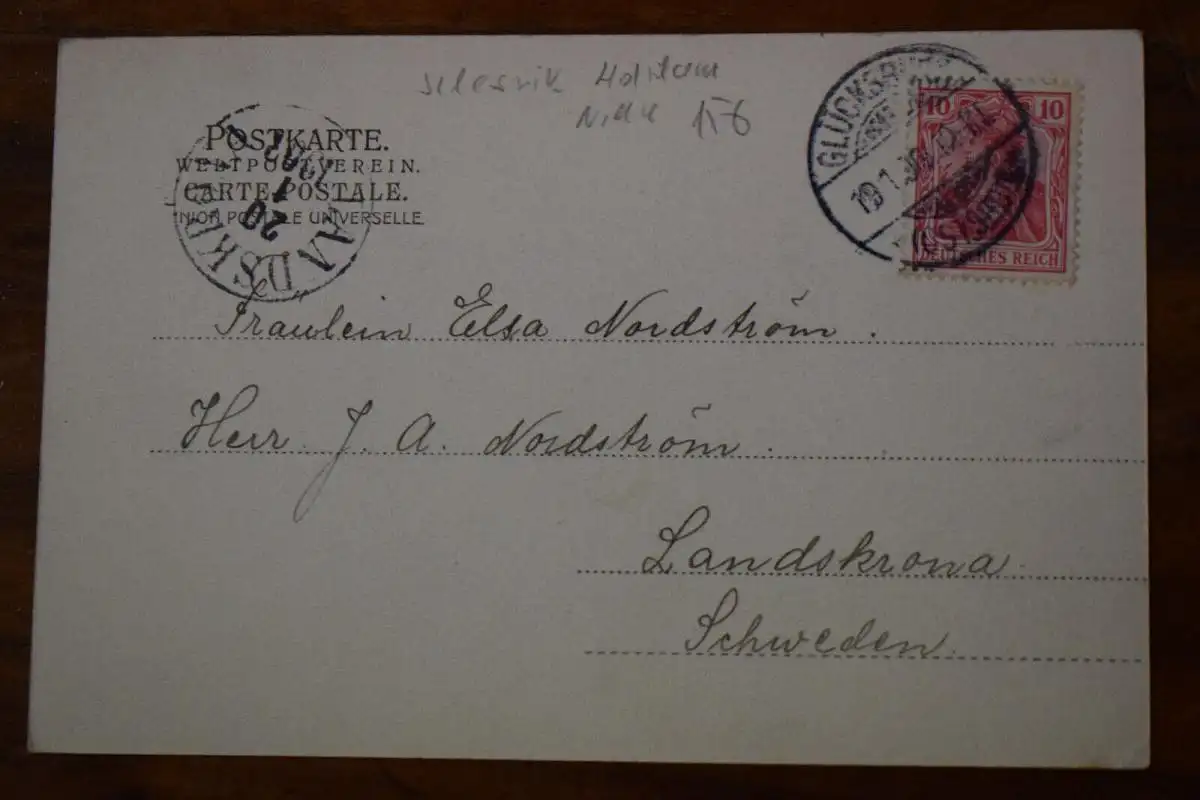 156
POSTKARTE.
WELTPOSTVEREIN.
CARTE POSTALE.
UNION POSTALE UNIVERSELLE
LANDSKRONA
20
1
GLÜCKSBURG
(OSTSEE)
19 1
10 10
DEUTSCHES REICH
Fraulein Elsa Nordström.
Herr J. A. Nordström.
Landskrona
Schweden.